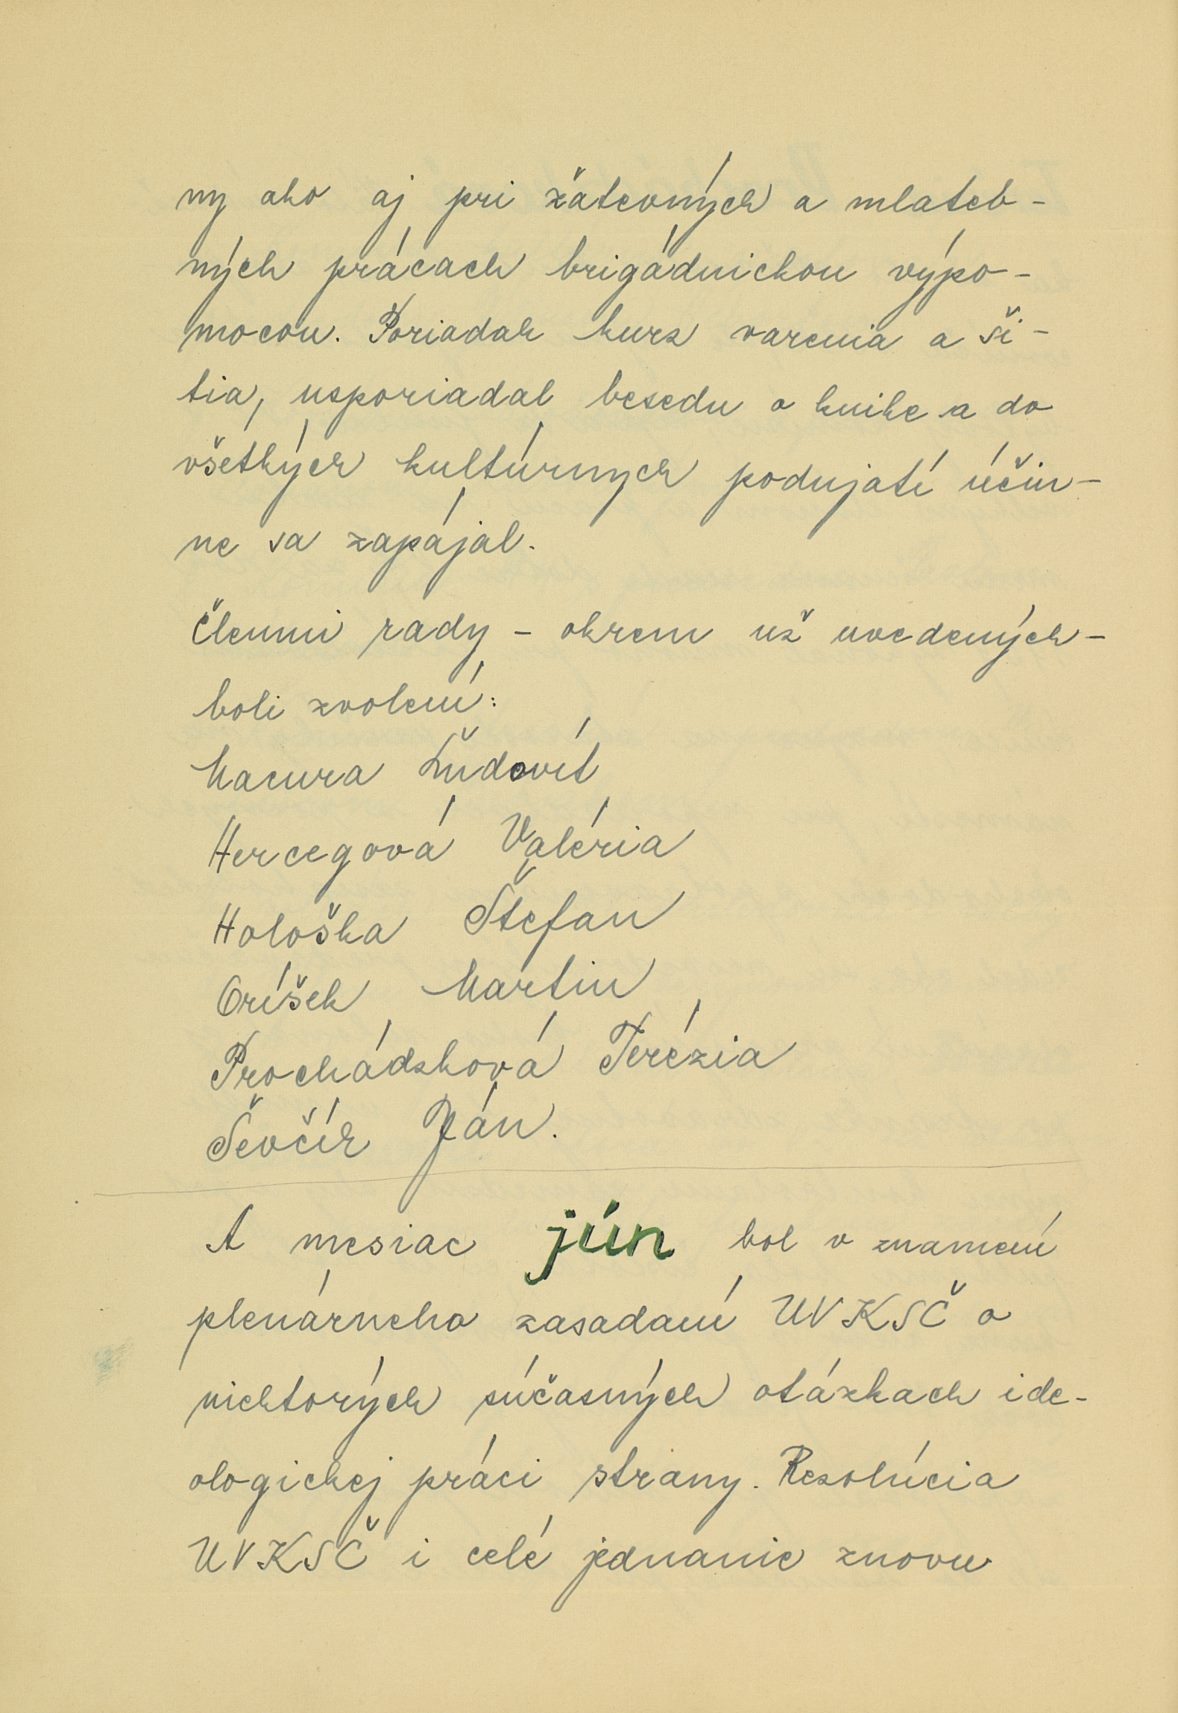 ny ako aj pri žatevných a mlateb-
ných prácach brigádnickou výpo-
mocou. Poriadal kurz varenia a ši-
tia, usporiadal besedu o knihe a do
všetkých kultúrnych podujatí účin-
ne sa zapájal.
Členmi rady - okrem už uvedených -
boli zvolení:
Macura Ľudovít
Hercegová Valéria
Hološka Štefan
Oríšek Martin
Prochádzková Terézia
Ševčík Ján.
A mesiac jún bol v znamení
plenárneho zasadaní UVKSČ o
niektorých súčasných otázkach ide-
ologickej práci strany. Rezolúcia
UVKSČ i celé jednanie znovu